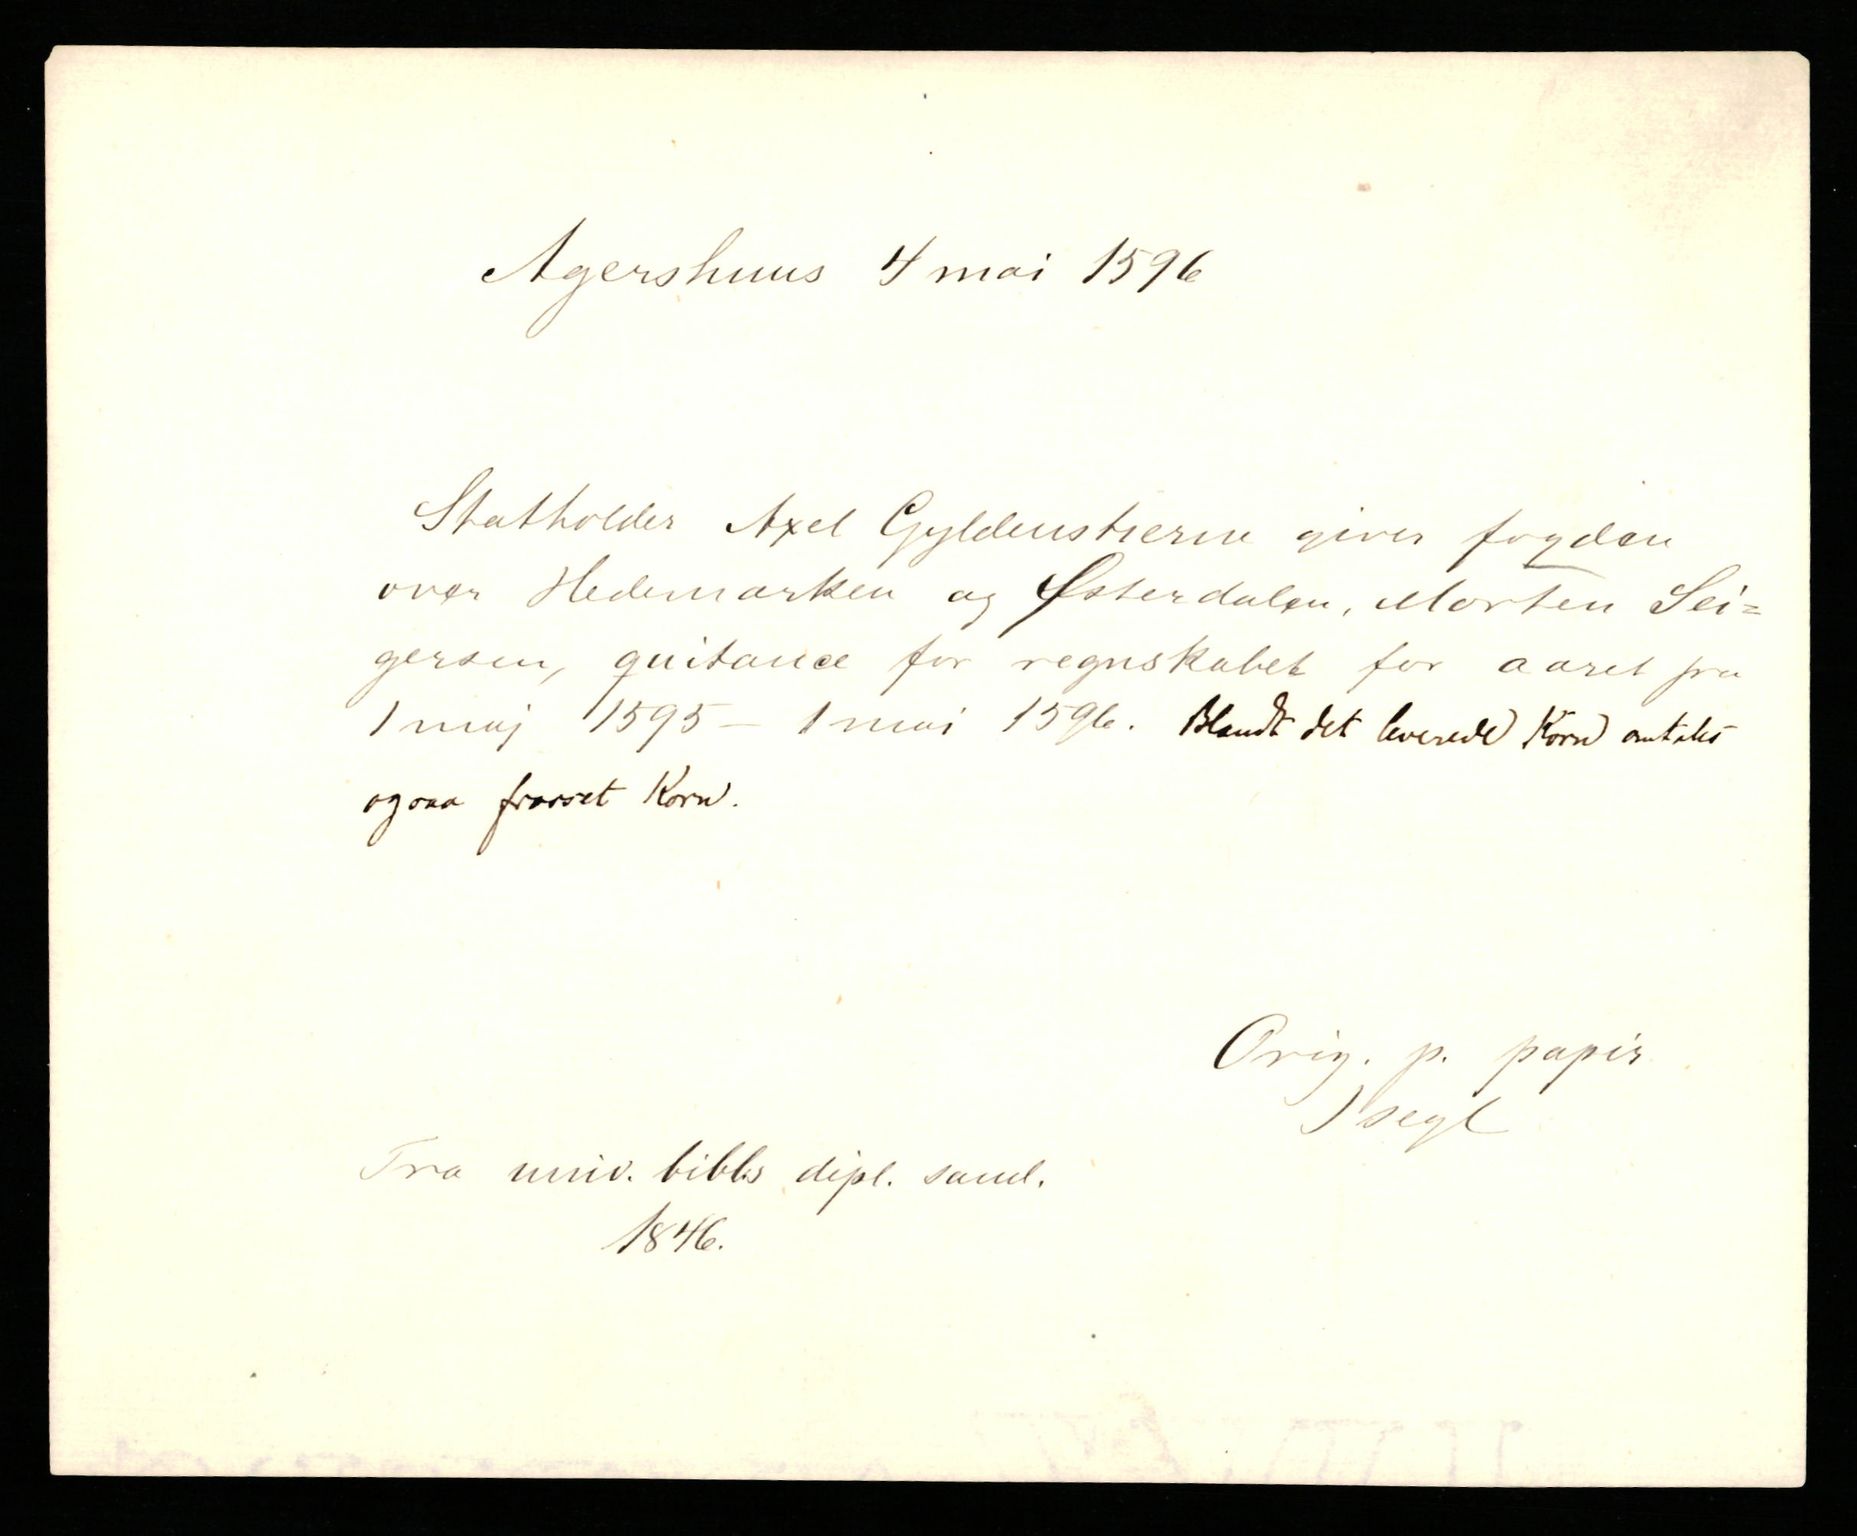 Agershuus 4 mai 1596
Statholder Axel Gyldenstierne giver fogden
over Hedemarken og Østerdalen, Morten Sei=
gersen, quitance for regnskabet for aaret fra
1 maj 1595 — 1 mai 1596. Blandt det leverede Korn omtales
ogsaa frosset Korn.
Orig. p. papir
1 segl
Fra univ. bibls dipl. saml.
1846.